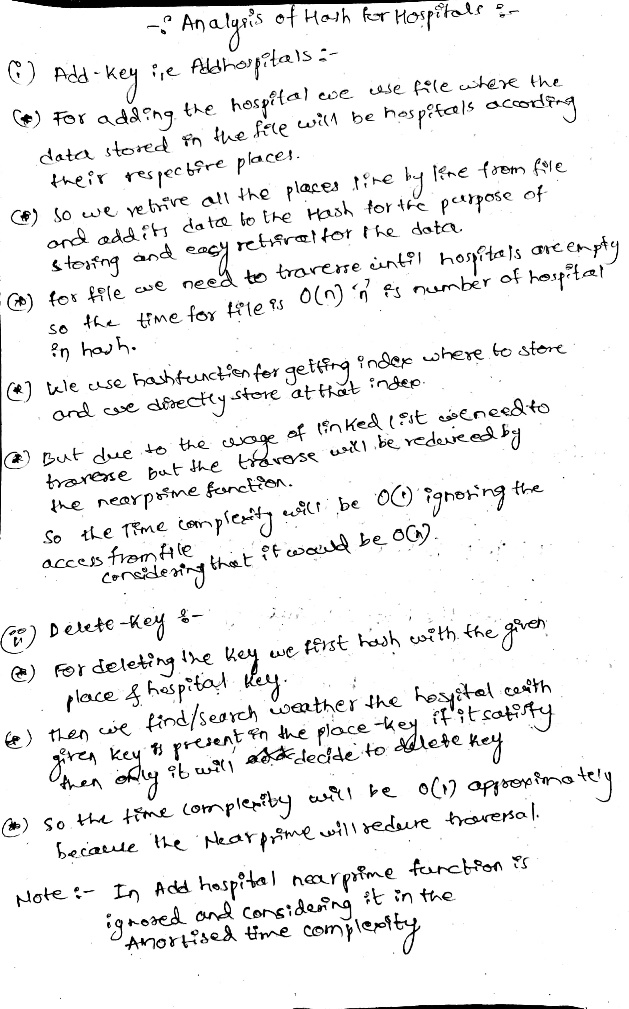 -: Analysis of Hash for Hospitals :-
(i) Add-key i,e Addhospitals :-
(*) For adding the hospital we use file where the
data stored in the file will be hospitals according
their respective places.
(*) So we retrive all the places line by line from file
and add its data to the Hash for the purpose of
storing and easy retrival for the data.
(*) for file we need to traverse until hospitals are empty
so the time for file is O(n) 'n' is number of hospital
in hash.
(*) We use hashfunction for getting index where to store
and we directly store at that index.
(*) But due to the usage of linked list we need to
traverse but the traverse will be redeuced by
the nearprime function.
So the Time complexity will be O(1) ignoring the
access from file
considering that it would be O(n).
(ii) Delete-key :-
(*) For deleting the key we first hash with the given
place & hospital key.
(*) then we find/search weather the hospital with
given key is present in the place-key if it satisfy
then only it will decide to delete key
(*) So the time complexity will be O(1) approximately
because the Nearprime will redure traversal.
Note :- In Add hospital nearprime function is
ignored and considering it in the
Amortised time complexity